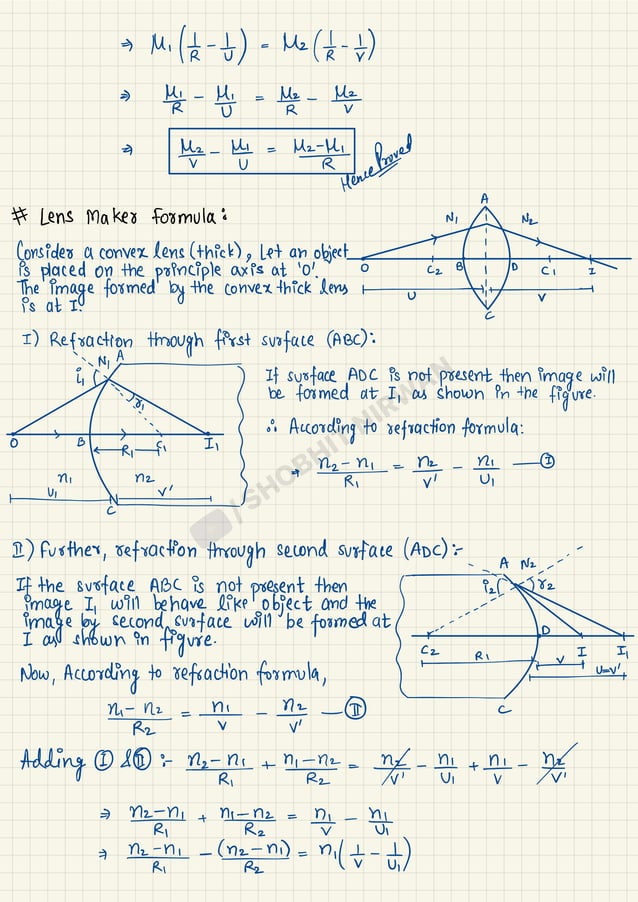 ⇒ μ₁(1/R - 1/U) = μ₂(1/R - 1/V)
⇒ μ₁/R - μ₁/U = μ₂/R - μ₂/V
⇒ μ₂/V - μ₁/U = μ₂-μ₁/R
Hence Proved
# Lens Maker Formula:
Consider a convex lens (thick), Let an object
is placed on the principle axis at 'O'.
The image formed by the convex thick lens
is at I.
A
N₁ N₂
O C₂ B D C₁ I
U V
C
I) Refraction through first surface (ABC):
N₁ A
i₁ r₁
O B R₁ C₁ I₁
n₁ n₂
U₁ V'
N
C
If surface ADC is not present then image will
be formed at I₁ as shown in the figure.
∴ According to refraction formula:
→ n₂-n₁/R₁ = n₂/V' - n₁/U₁ — Ⓘ
/ SHOBHIT NIRWAN
II) Further, refraction through second surface (ADC):-
If the surface ABC is not present then
image I₁ will behave like object and the
image by second surface will be formed at
I as shown in figure.
A N₂
i₂ r₂
D
C₂ R₁ V I I₁
U=V'
C
Now, According to refraction formula,
n₁-n₂/R₂ = n₁/V - n₂/V' — Ⓘ Ⓘ
Adding Ⓘ & ⒾⒾ :- n₂-n₁/R₁ + n₁-n₂/R₂ = n₂/V' - n₁/U₁ + n₁/V - n₂/V'
⇒ n₂-n₁/R₁ + n₁-n₂/R₂ = n₁/V - n₁/U₁
⇒ n₂-n₁/R₁ - (n₂-n₁)/R₂ = n₁(1/V - 1/U₁)